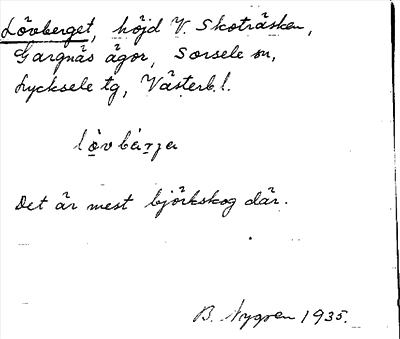 Lövberget, höjd V. Skoträsken,
Gargnäs ägor, Sorsele sn,
Lycksele tg, Västerb. l.
lövbärja
Det är mest björkskog där.
B. Nygren 1935.